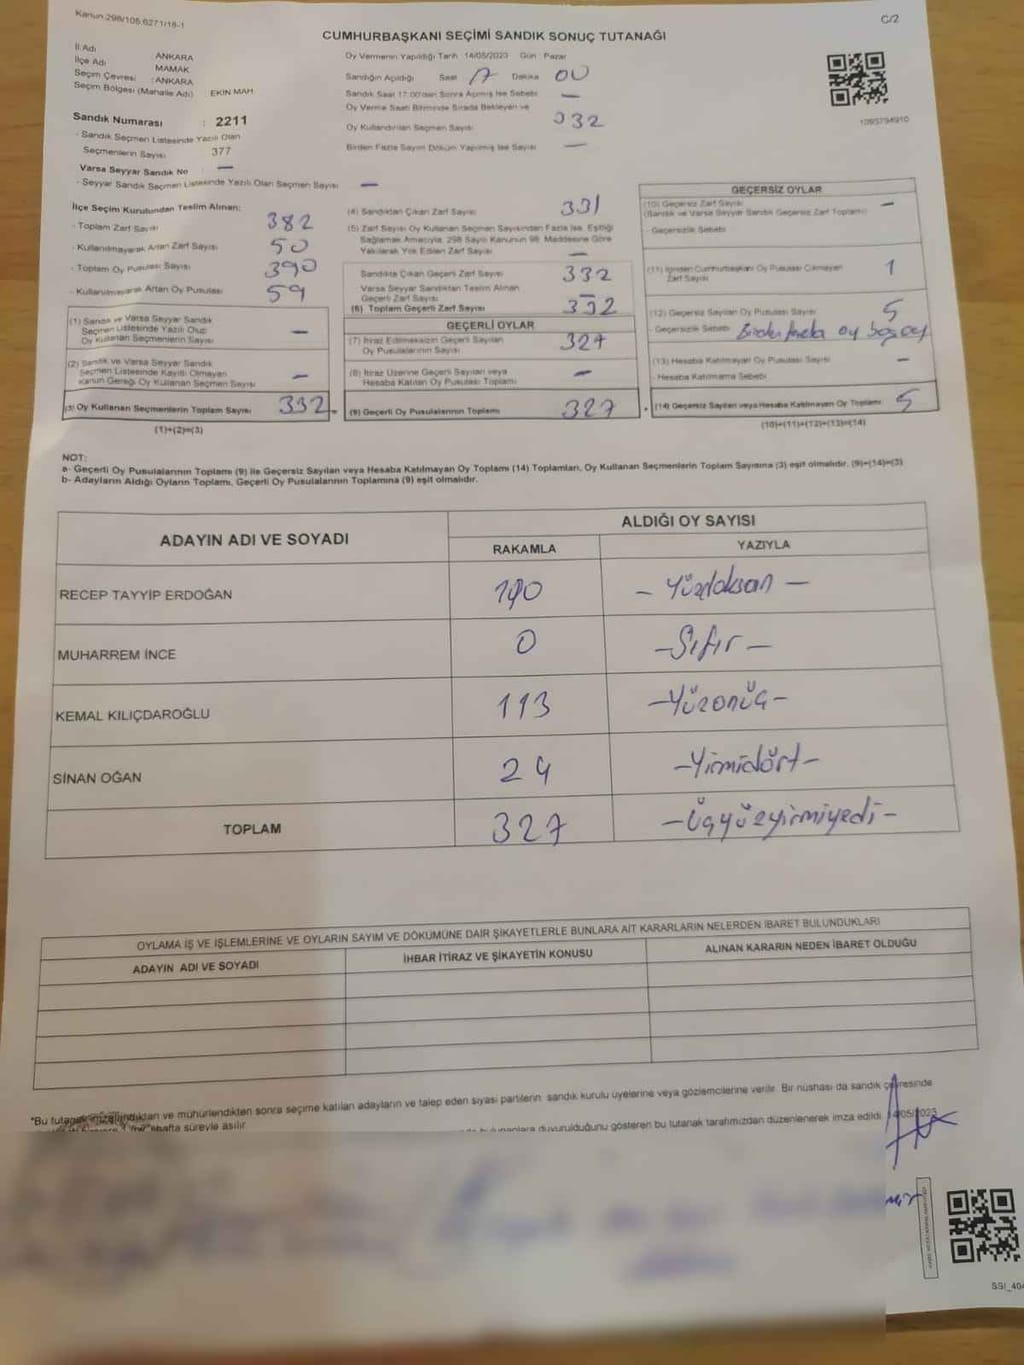 Kanun:298/105,6271/18-1
C/2
CUMHURBAŞKANI SEÇİMİ SANDIK SONUÇ TUTANAĞI
İl Adı ANKARA
İlçe Adı MAMAK
Seçim Çevresi : ANKARA
Seçim Bölgesi (Mahalle Adı) EKİN MAH
Sandık Numarası : 2211
- Sandık Seçmen Listesinde Yazılı Olan
Seçmenlerin Sayısı 377
Varsa Seyyar Sandık No : —
- Seyyar Sandık Seçmen Listesinde Yazılı Olan Seçmen Sayısı —
Oy Vermenin Yapıldığı Tarih 14/05/2023 Gün : Pazar
Sandığın Açıldığı Saat 17 Dakika 00
Sandık Saat 17:00'den Sonra Açılmış İse Sebebi —
Oy Verme Saati Bitiminde Sırada Bekleyen ve
Oy Kullandırılan Seçmen Sayısı 332
Birden Fazla Sayım Döküm Yapılmış İse Sayısı —
1093794910
İlçe Seçim Kurulundan Teslim Alınan:
- Toplam Zarf Sayısı 382
- Kullanılmayarak Artan Zarf Sayısı 50
- Toplam Oy Pusulası Sayısı 390
- Kullanılmayarak Artan Oy Pusulası 59
(1) Sandık ve Varsa Seyyar Sandık
Seçmen Listesinde Yazılı Olup
Oy Kullanan Seçmenlerin Sayısı —
(2) Sandık ve Varsa Seyyar Sandık
Seçmen Listesinde Kayıtlı Olmayan
Kanun Gereği Oy Kullanan Seçmen Sayısı —
(3) Oy Kullanan Seçmenlerin Toplam Sayısı 332
(1)+(2)=(3)
(4) Sandıktan Çıkan Zarf Sayısı 331
(5) Zarf Sayısı Oy Kullanan Seçmen Sayısından Fazla İse, Eşitliği
Sağlamak Amacıyla, 298 Sayılı Kanunun 98. Maddesine Göre
Yakılarak Yok Edilen Zarf Sayısı —
Sandıkta Çıkan Geçerli Zarf Sayısı 332
Varsa Seyyar Sandıktan Teslim Alınan
Geçerli Zarf Sayısı —
(6) Toplam Geçerli Zarf Sayısı 332
GEÇERLİ OYLAR
(7) İtiraz Edilmeksizin Geçerli Sayılan
Oy Pusulalarının Sayısı 327
(8) İtiraz Üzerine Geçerli Sayılan veya
Hesaba Katılan Oy Pusulası Toplamı —
(9) Geçerli Oy Pusulalarının Toplamı 327
GEÇERSİZ OYLAR
(10) Geçersiz Zarf Sayısı —
(Sandık ve Varsa Seyyar Sandık Geçersiz Zarf Toplamı)
- Geçersizlik Sebebi
(11) İçinden Cumhurbaşkanı Oy Pusulası Çıkmayan
Zarf Sayısı 1
(12) Geçersiz Sayılan Oy Pusulası Sayısı 5
- Geçersizlik Sebebi Birden fazla oy boş oy
(13) Hesaba Katılmayan Oy Pusulası Sayısı —
- Hesaba Katılmama Sebebi
(14) Geçersiz Sayılan veya Hesaba Katılmayan Oy Toplamı 5
(10)+(11)+(12)+(13)=(14)
NOT:
a- Geçerli Oy Pusulalarının Toplamı (9) ile Geçersiz Sayılan veya Hesaba Katılmayan Oy Toplamı (14) Toplamları, Oy Kullanan Seçmenlerin Toplam Sayısına (3) eşit olmalıdır. (9)+(14)=(3)
b- Adayların Aldığı Oyların Toplamı, Geçerli Oy Pusulalarının Toplamına (9) eşit olmalıdır.
ADAYIN ADI VE SOYADI
ALDIĞI OY SAYISI
RAKAMLA YAZIYLA
RECEP TAYYİP ERDOĞAN 190 — Yüzdoksan —
MUHARREM İNCE 0 — Sıfır —
KEMAL KILIÇDAROĞLU 113 — Yüzonüç —
SİNAN OĞAN 24 — Yirmidört —
TOPLAM 327 — Üçyüzyirmiyedi —
OYLAMA İŞ VE İŞLEMLERİNE VE OYLARIN SAYIM VE DÖKÜMÜNE DAİR ŞİKAYETLERLE BUNLARA AİT KARARLARIN NELERDEN İBARET BULUNDUKLARI
ADAYIN ADI VE SOYADI İHBAR İTİRAZ VE ŞİKAYETİN KONUSU ALINAN KARARIN NEDEN İBARET OLDUĞU
*Bu tutanak imzalandıktan ve mühürlendikten sonra seçime katılan adayların ve talep eden siyasi partilerin sandık kurulu üyelerine veya gözlemcilerine verilir. Bir nüshası da sandık çevresinde
hafta süreyle asılır.
duyurulduğunu gösteren bu tutanak tarafımızdan düzenlenerek imza edildi. 14/05/2023